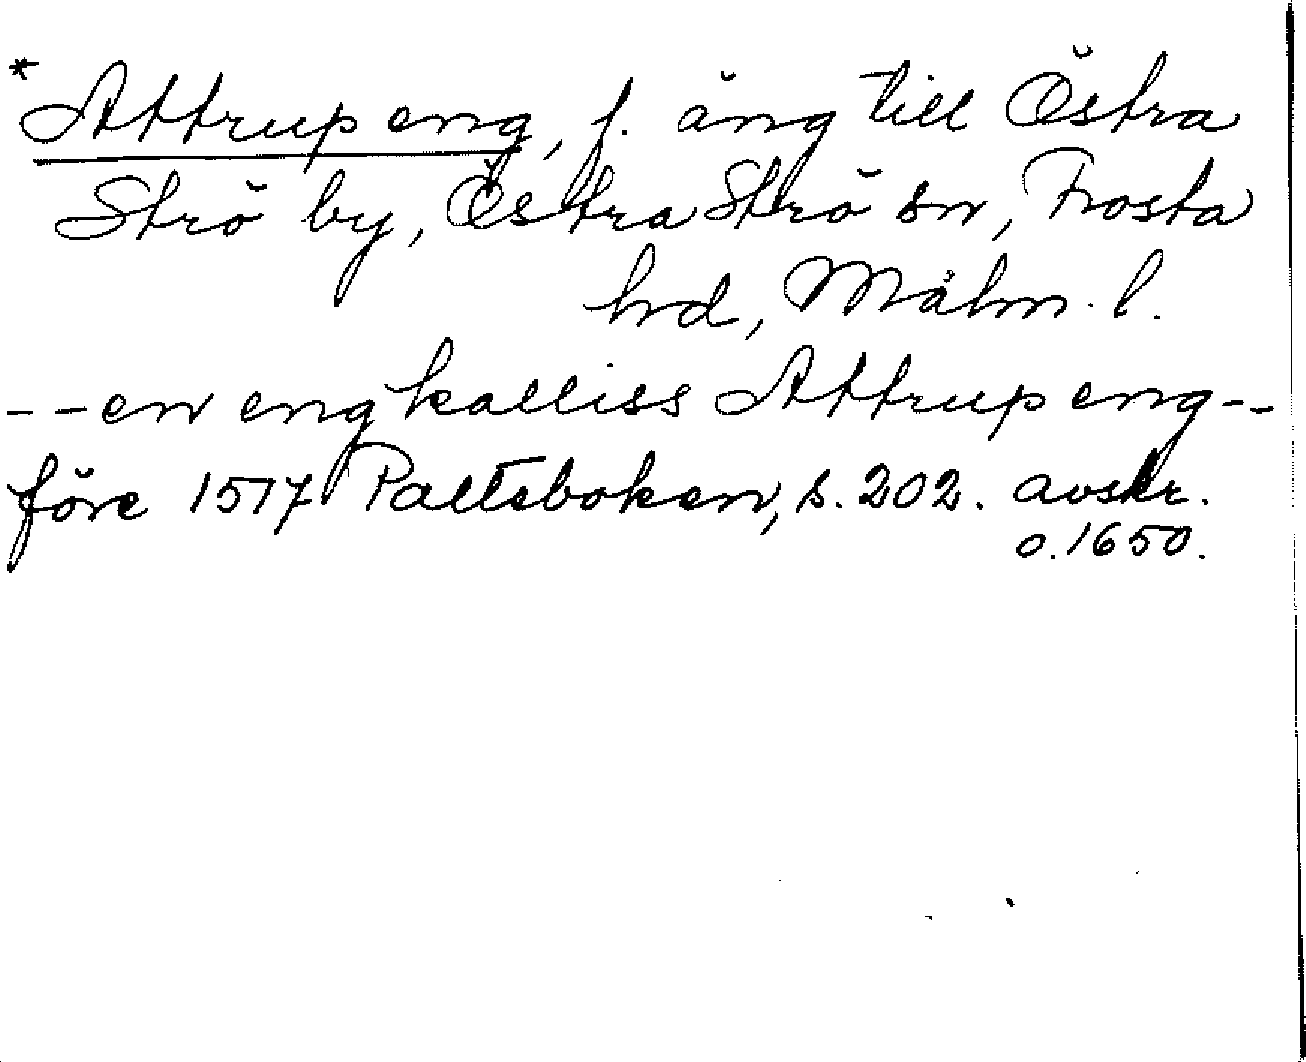 * Attrup eng, f. äng till Östra
Strö by, Östra Strö sn, Frosta
hd, Malm. l.
-- en eng kalliss Attrup eng --
före 1517 Paltsboken, s. 202. avskr.
o. 1650.